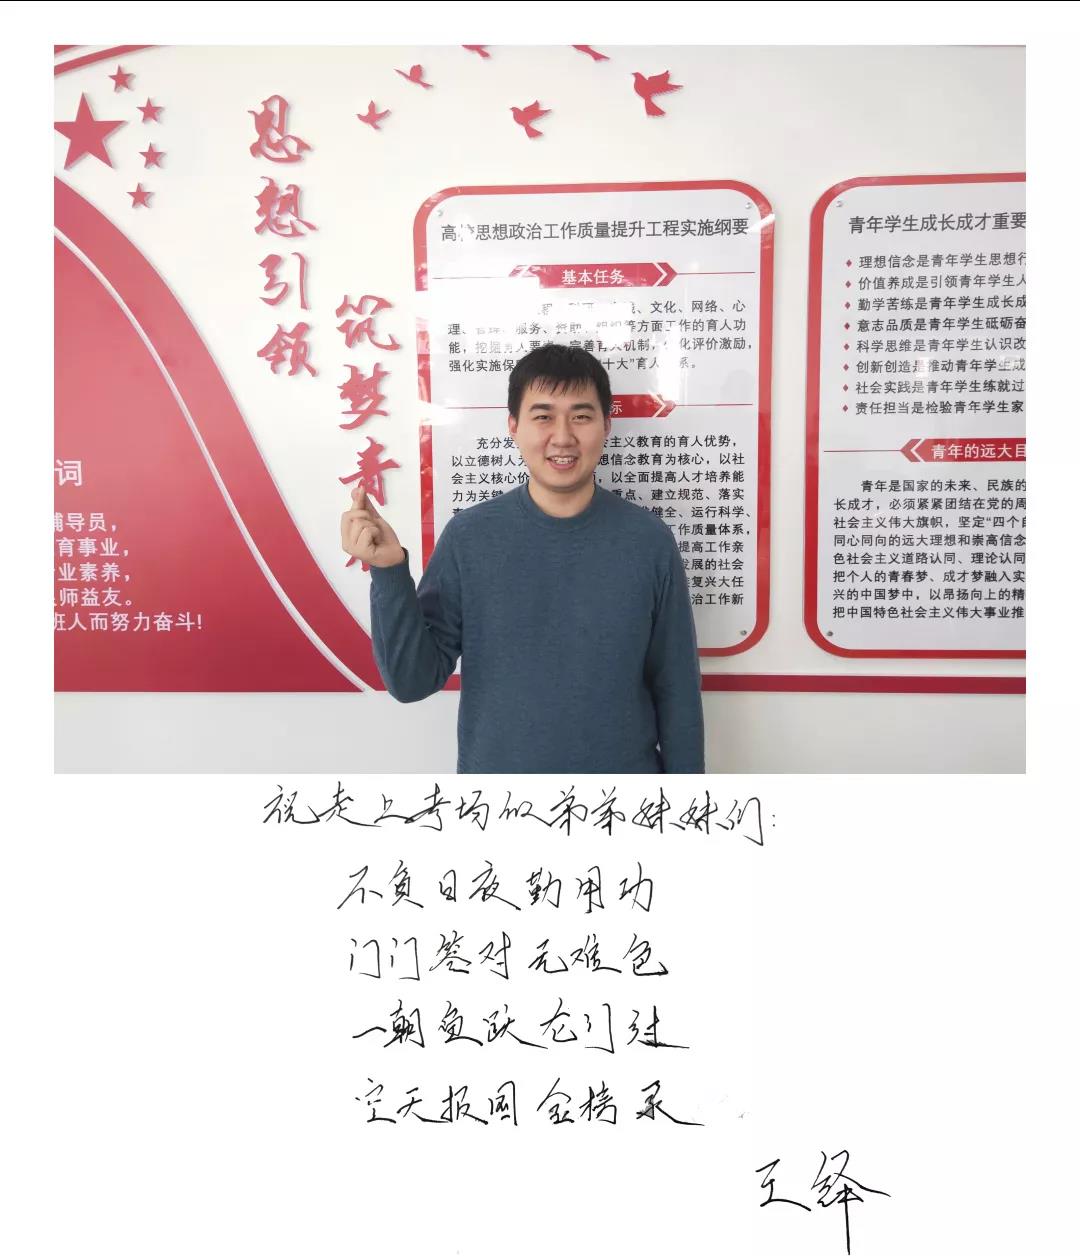 思想引领
筑梦青
高校思想政治工作质量提升工程实施纲要
基本任务
文化、网络、心
理、管理、服务、资助、组织等方面工作的育人功
能,挖掘育人要素,完善育人机制,优化评价激励,
强化实施保 十大”育人 系。
示
充分发 会主义教育的育人优势,
以立德树人为 想信念教育为核心,以社
会主义核心价 ,以全面提高人才培养能
力为关键 重点、建立规范、落实
健全、运行科学、
工作质量体系,
提高工作亲
发展的社会
复兴大任
治工作新
青年学生成长成才重要
理想信念是青年学生思想行
价值养成是引领青年学生人
勤学苦练是青年学生成长成
意志品质是青年学生砥砺奋
科学思维是青年学生认识改
创新创造是推动青年学生成
社会实践是青年学生练就过
责任担当是检验青年学生家
青年的远大目
青年是国家的未来、民族的
长成才,必须紧紧团结在党的周
社会主义伟大旗帜,坚定“四个自
同心同向的远大理想和崇高信念
色社会主义道路认同、理论认同
把个人的青春梦、成才梦融入实
兴的中国梦中,以昂扬向上的精
把中国特色社会主义伟大事业推
词
辅导员,
育事业,
业素养,
师益友。
班人而努力奋斗!
祝走上考场的弟弟妹妹们:
不负日夜勤用功
门门答对无难色
一朝鱼跃龙门过
空天报国金榜录
王绎